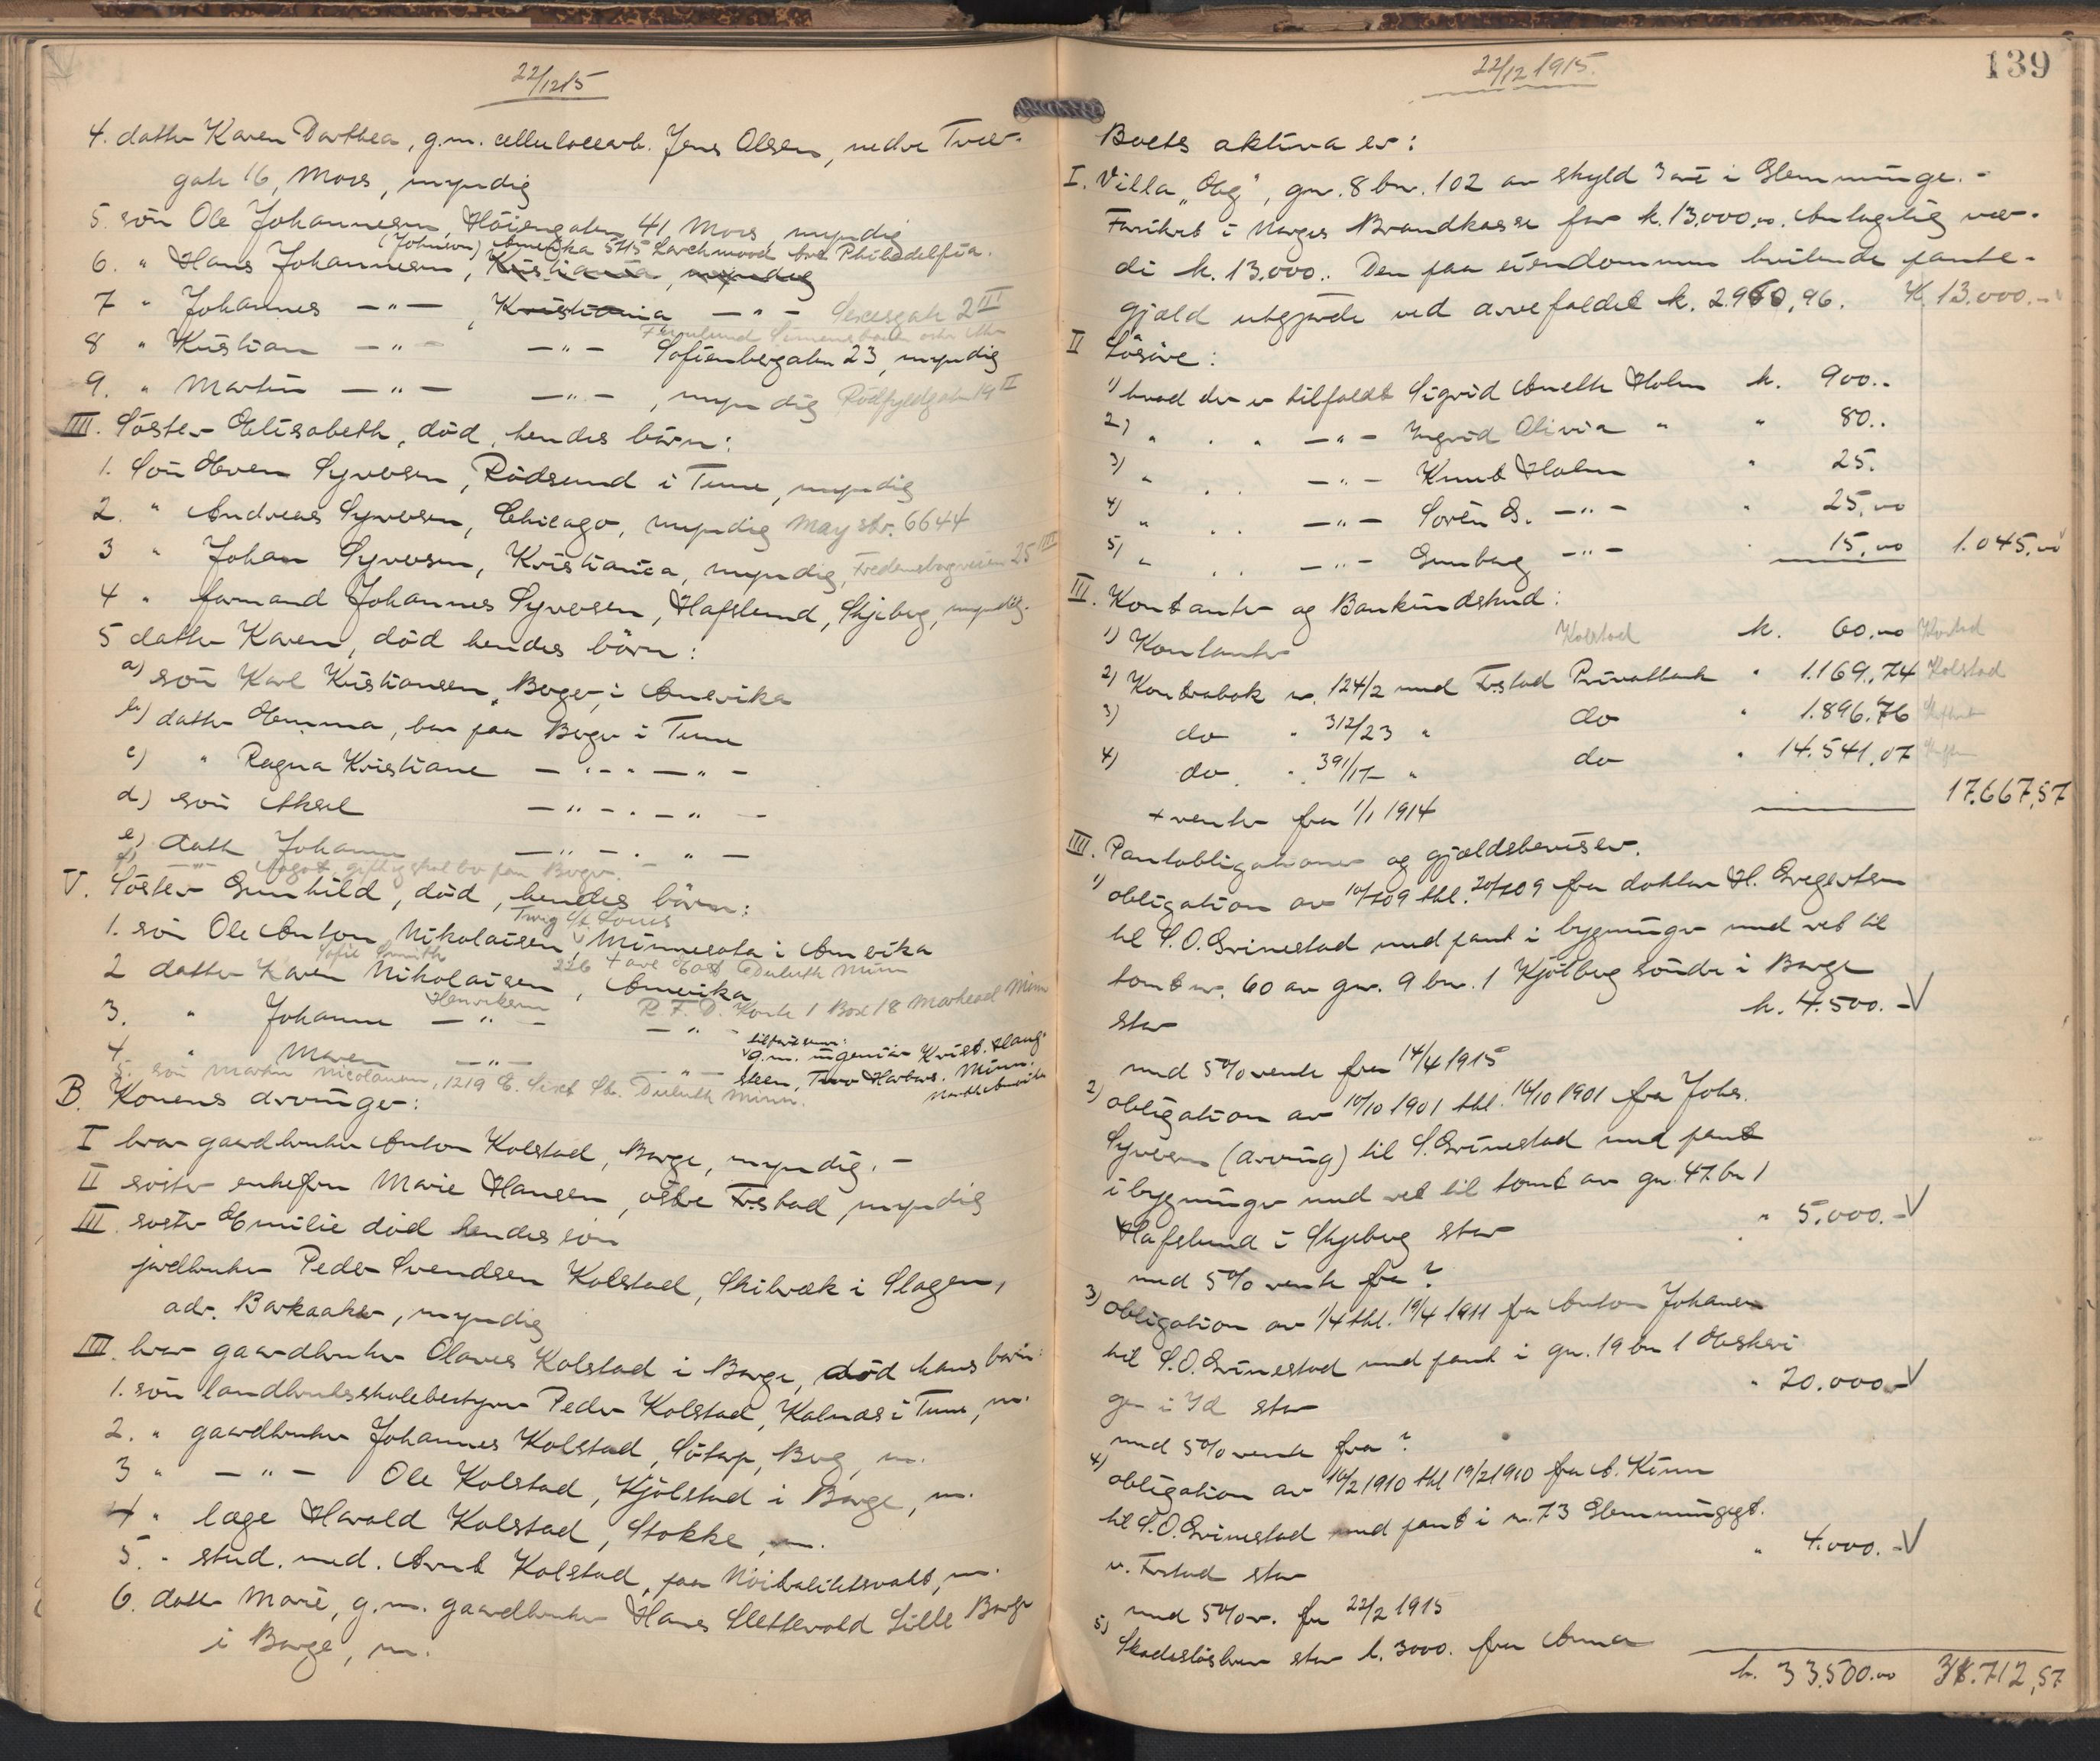 22/12 15
4. datter Karen Dorthea, g.m. cellulosearb. Jens Olsen, nedre Tvær-
gate 16, Moss, myndig
5. sön Ole Johannesen, Höiengaten 41, Moss, myndig
(Johnson) Amerika 5415 Larchmood Ave Philadelfia.
6. " Hans Johannesen, Kristiania, myndig
7 " Johannes —"— , Kristiania —"— 2 III
8 " Kristian —"— —"— Sofienberggaten 23, myndig
9. " Martin —"— —"— , myndig Rödfyldgaten 19 II
IIII. Söster Elisabeth, död, hendes börn:
1. Sön Even Syversen, Rödsund i Tune, myndig
2. " Andreas Syversen, Chicago, myndig May str. 6644
3 " Johan Syversen, Kristiania, myndig, Fredensborgveien 25 III
4 " formand Johannes Syversen, Hafslund, Skjeberg, myndig.
5 datter Karen, död hendes börn:
a) sön Karl Kristiansen, Boger, i Amerika
b) datter Emma, bor paa Boger i Tune
c) " Ragna Kristiane — " — — " —
d) sön Aksel — " — — " —
e) datt Johanne — " — — " —
f) —"— Aagot, gift og skal bo paa Boger.
V. Söster Gunhild, död, hendes börn:
Twig
1. sön Ole Anton Nikolaisen, Minnesota i Amerika
Sofie Smith 226 ave East Duluth Minn
2 datter Karen Nikolaisen, Amerika
Henriksen R.F.D. Route 1 Box 18 Moorhead Minn
3. " Johanne —"— —"—
4. " Maren —"— —"— g.m. ingeniör Krist. Haug-
steen, Two Harbors. Minn.
North Amerika
5. sön Martin Nicolaisen, 1219 E. Sixt Str. Duluth Minn.
B. Konens arvinger:
I bror gaardbruker Anton Kolstad, Borge, myndig. —
II söster enkefru Marie Hansen, östre Fr.stad, myndig
III. söster Emilie död hendes sön
jordbruker Peder Svendsen Kolstad, Skilbræk i Slagen,
adr. Barkaaker, myndig
IIII. bror gaardbruker Olaves Kolstad i Borge, död hans börn:
1. sön landbruksskolebestyrer Peder Kolstad, Kalnæs i Tune, m.
2. " gaardbruker Johannes Kolstad, Sötorp, Borge, m.
3 " —"— Ole Kolstad, Kjölstad i Borge, m.
4 " læge Harald Kolstad, Stokke, m.
5. " stud. med. Arnt Kolstad, paa Nöitralitetsvakt, m.
6. datter Marie, g.m. gaardbruker Hans Slettevold Lille Borge
i Borge, m.
22/12 1915.
139
Boets aktiva er:
I. Villa "Dag", gnr. 8 bnr. 102 av skyld 3 øre i Glemminge. -
Forsikret i Norges Brandkasse for k. 13.000,00. Antagelig vær-
di k. 13.000. Den paa eiendommen hvilende pante-
gjæld utgjorde ved arvefaldet k. 2.960,96. K. 13.000.-
II Lösöre:
1) hvad der er tilfaldt Sigrid Anette Holm k. 900..
2) " " " —"— Ingrid Olivia " " 80..
3) " " " —"— Knut Holm " 25.
4) " " " —"— Sören G. —"— " 25,00
5) " " " —"— Gunborg —"— 15,00 1.045,00
III. Kontanter og Bankindskud:
1) Kontanter Kolstad k. 60.00 Kolstad
2) Kontrabok nr. 124/2 med Fr.stad Privatbank " 1.169,74 Kolstad
3) do " 312/23 " do " 1.896.76
4) do " 391/17 " do " 14.541,07
+ renter fra 1/1 1914 17.667,57
IIII. Pantobligationer og gjældsbeviser.
1) obligation av 10/8 09 thl. 20/8 09 fra doktor H. Gregertsen
til S.O. Grinestad med pant i bygninger med ret til
tomt nr. 60 av gnr. 9 bnr. 1 Kjölberg söndre i Borge
stor k. 4.500.-
med 5% rente fra 14/4 1915
2) obligation av 10/10 1901 thl. 14/10 1901 fra Johs.
Syversen (arving) til S. Grinestad med pant
i bygninger med ret til tomt av gnr. 47 bnr 1
Hafslund i Skjeberg stor " 5.000.-
med 5% rente fra?
3) obligation av 1/4 thl. 19/4 1911 fra Anton Johansen
til S.O. Grinestad med pant i gnr. 19 bnr 1 Eskevi-
gen i Id stor " 20.000.-
med 5% rente fra?
4) obligation av 10/2 1910 thl 19/2 1910 fra A. Kinn
til S.O. Grinestad med pant i nr. 73 Glemmingegt.
v. Fr.stad stor " 4.000.-
med 5% r. fra 22/2 1915
5) Skadeslösbrev stor k. 3000. fra Anna
k. 33.500.00 31.712,57